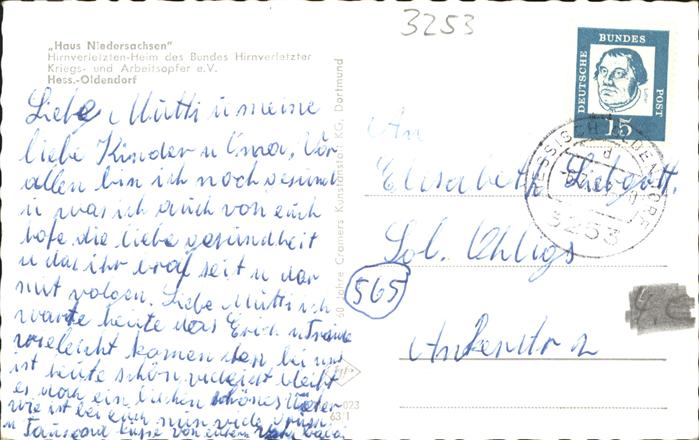 3253
„Haus Niedersachsen“
Hirnverletzten-Heim des Bundes Hirnverletzter
Kriegs- und Arbeitsopfer e.V.
Hess.-Oldendorf
Liebe Mutti u meine
liebe Kinder u Oma, Vor
allen bin ich noch gesund
u was ich auch von euch
hofe die liebe gesundheit
u das ihr brav seit u der
mut volgen. Liebe Mutti ich
warte heute das Erich u
vieleicht kamen den bei uns
ist heute schön vieleicht bleibt
es noch ein bischen schönes
wie ist bei euch nun viele
u Tausend Küsse von eurem
60 Jahre Cramers Kunstanstalt KG, Dortmund
023
63/1
DEUTSCHE BUNDESPOST
Luther
15
HESSISCH OLDENDORF
3253
An
Elisabeth Liebgott.
Sol. Ohligs
565